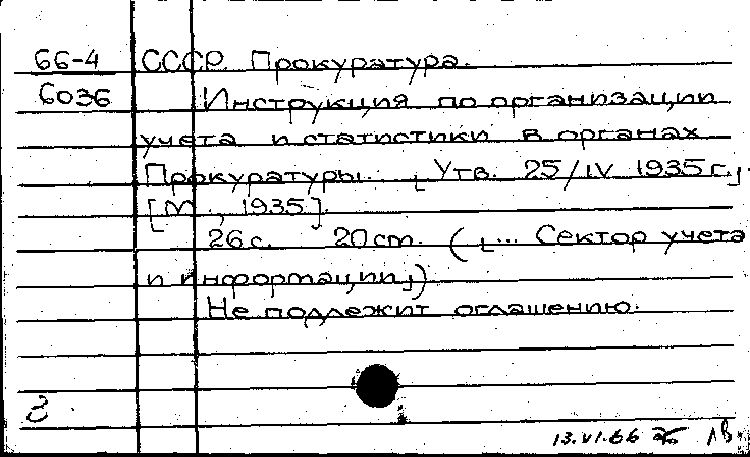 66-4 СССР. Прокуратура.
6036 Инструкция по организации
учета и статистики в органах
Прокуратуры. [Утв. 25/IV 1935 г.].
[М., 1935].
26 с. 20 cm. ([... Сектор учета
и информации])
Не подлежит оглашению.
13.VI.66